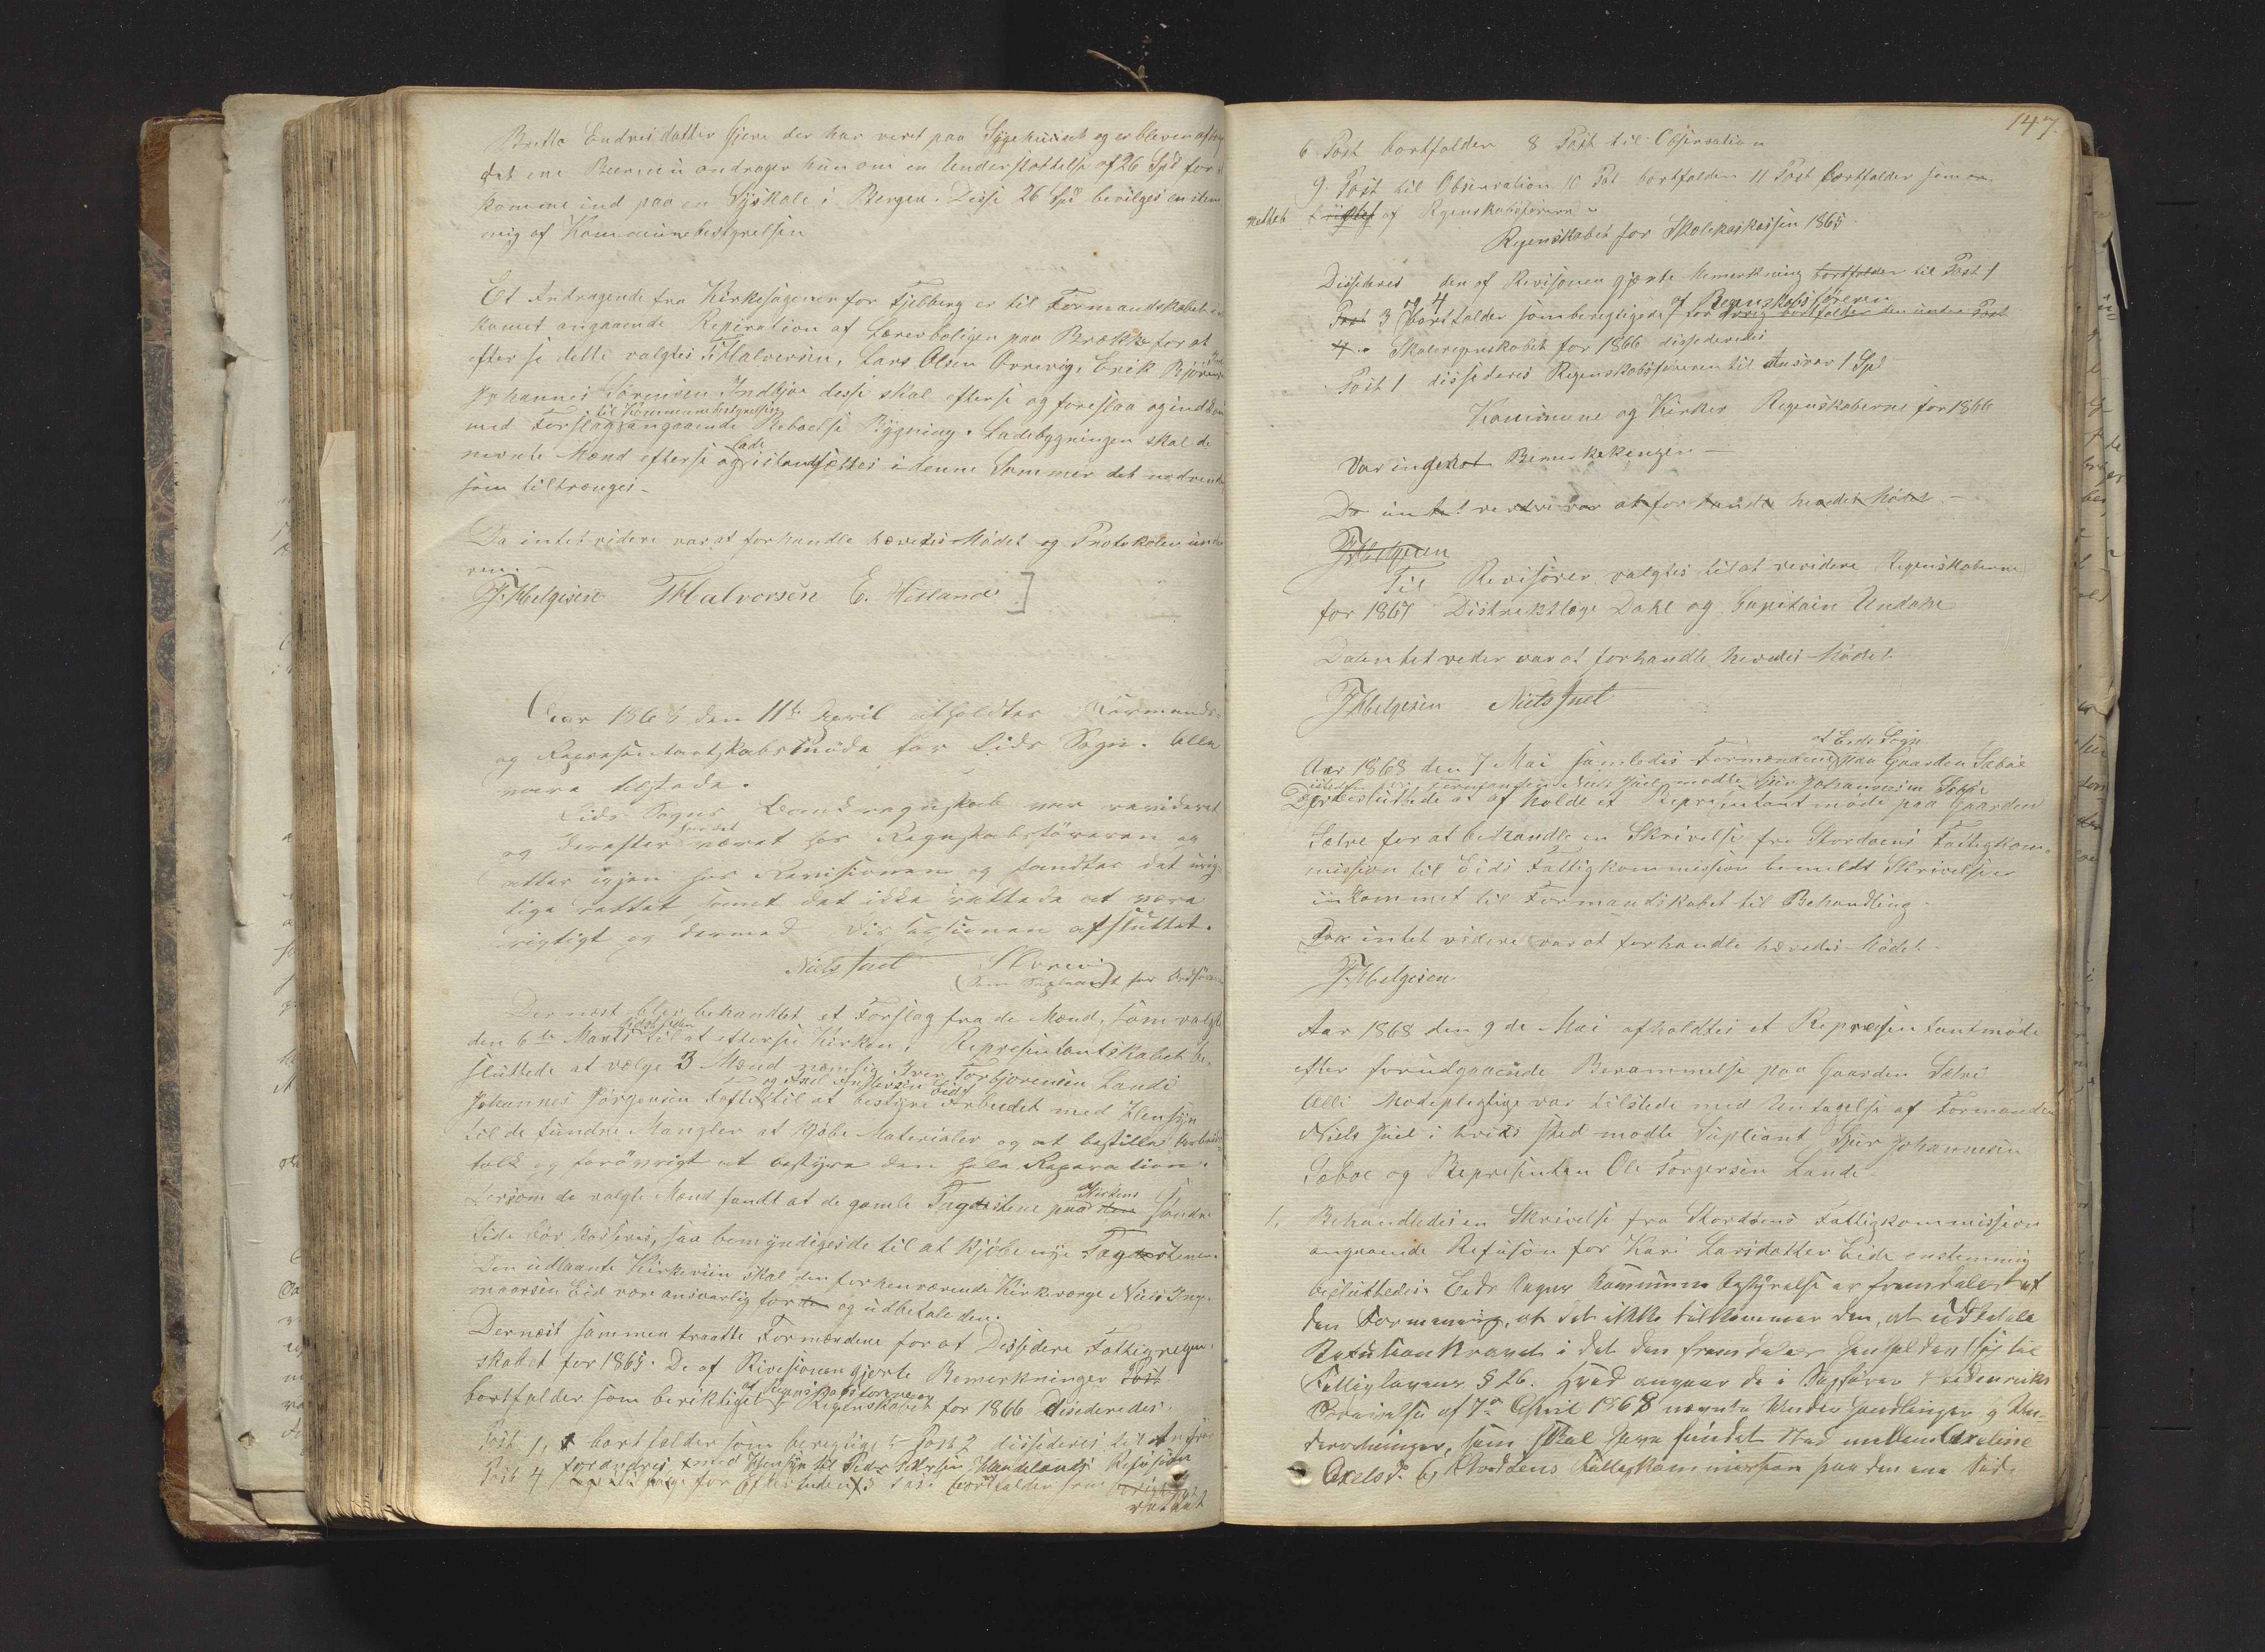 Britta Endresdatter Gjere der har veret paa Sygehuuset og er bleven aftag
det ene Been nu andrager hun om en Understøttelse af 26 Spd for at
komme ind paa en Syskole i Bergen. Disse 26 Spd bevilges enstem
mig af Kommunebestyrelsen
Et Andragende fra Kirkesangeren for Fjelberg er til Formandskabet
komet angaaende Repiration af Lærerboligen paa Brække for at
efter se dette valgtes T Halvorsen, Lars Olsen Ørrevig, Erik Bjørnsen
Johannes Sørensen Indbjoe desse skal efterse og foreslaa og indkom
med Forslag til Kommunebestyrelsen angaaende Beboelse Bygning. Ladebygningen skal de
nevnte Mænd efterse og lade istandsættes i denne Sommer det nødvendig
som tiltrænges -
Da intet videre var at forhandle hævedes Mødet og Protokolen under
ren. -
F. Helgesen THalvorsen E. Hetland
Aar 1868 den 11te April afholdtes Formands-
og Repræsentantskabsmøde for Eids Sogn. Alle
være tilstede.
Eids Sogns Landregnskab var revideret
og derefter havdet været hos Regnskabsføreren og
atter igjen hos Revisionen og fandtes det urig-
tige rettet samt det ikke rettede at være
rigtigt og dermed Dissitionen afsluttet.
Niels Juel
(Som Supleant for Ordføreren
Dernæst blev behandlet et Forslag fra de Mænd, som valgte
den 6te Marts sidstleden til at efterse Kirken. Representantskabet be-
sluttede at vælge 3 Mænd nemlig Iver Torbjørnsen Lande
Johannes Jørgensen Tofte og Axel Andersen Eide til at bestyre Arbeidet med Hensyn
til de fundne Mangler at kjøbe Materialer og at bestille Arbeids
folk og forøvrigt at bestyre den hele Reparation.
Dersom de valgte Mænd fandt at de gamle Tagstene paa den Kirkens søndre
Side bør kasseres, saa bemyndiges de til at kjøbe nye Tagstene.
Den udlaante Kirkeviin skal den forhenværende Kirkeværge Niels Inge-
maarsen Eid være ansvarlig for den og udbetale den.
Dernæst sammentraatte Formændene for at Dessidere Fattigregn-
skabet for 1865. De af Revisionen gjorte Bemerkninger Post
bortfalder som beriktiget af Regnskabsføreren Regnskabet for 1866 Desideredes.
Post 1, bortfalder som beregtiget Post 2 dissideres til Ansvar
Post 4 forandres med Hensyn til Peder Larsen Haukelands Refusion
for Efterretten 5 Post bortfalder som
rettet
147.
6 Post bortfalder 8 Post til Observation
9. Post til Observation 10 Pst bortfalder 11 Post bortfalder som er
rettet af Regenskabsføreren
Regenskabet for Skolekaskassen 1865
Dissideres den af Revisonen gjorte bemerkning bortfalder til Post 1
Post 3 og 4 bortfalder som beregtigede af Regenskabsføreren for Øvrig bortfalder den under Post
4. Skoleregnskabet for 1866 dissideredes
Post 1 dissideres Regenskabsføreren til Ansvar 1 Spd
Kommune og Kirkes Regenskaberne for 1866
Var ingen Bemerkekingen -
Da intet vedere var at forhandle hevedes Mødet -
F Helgesen
Til Revisorer valgtes til at revidere Regenskaberne
for 1867 Distriktlæge Dahl og Capitain Undahl
Da intet veder var at forhandle hevedes Mødet
F. Helgesen Niels Juel
Aar 1868 den 7 Mai samledes Formændene af Eids Sogn paa Gaarden Sæbøe
istedenfor Formanden Niels Juel mødte Sjur Johannesen Sæbøe
Der besluttede at af holde et Representantmøde paa Gaarden
Sætre for at behandle en Skrivelse fra Stordøens Fattigkom-
mission til Eids Fattigkommission bemeldt Skrivelse er
inkommet til Formandskabet til Behandling.
Da intet videre var at forhandle hævedes Mødet.
F. Helgesen.
Aar 1868 den 9de Mai afholdtes et Repræsentantmøde
efter forudgaaende Berammelse paa Gaarden Sætre
Alle Mødepligtige var tilstede med Untagelse af Formanden
Niels Juel i hvis sted mødte Supliant Sjur Johannesen
Sæbøe og Represinten Ole Torgersen Lande
1, Behandledes en Skrivelse fra Stordøens Fattigkommission
angaaende Refusion for Kari Larsdatter Eide enstemmig
besluttedes: Eids Sogns Kommune bestyrelse er fremdeles af
den Formening, at det ikke tilkommer den, at udbetale
Refusionkravet i det den fremdeles henholder sig til
Fattiglovens § 26. Hvad angaar de i Sagfører Heidenreichs
Skrivelse af 7de April 1868 nævnte Underhandlinger og Un-
derretninger, som skal have fundet Sted mellem Axeline
Axelsd. og Stordøens Fattigkommission paa den ene Side